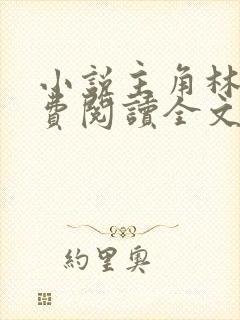 小說主角林
費閱讀全文
約里奧